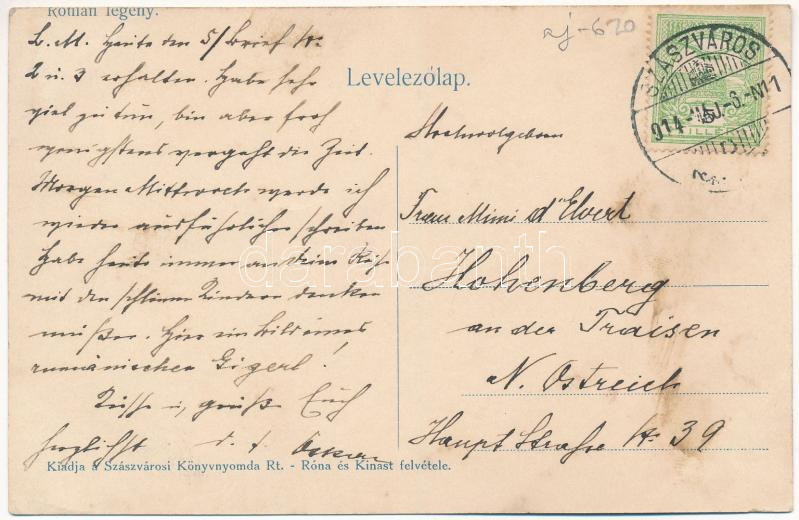 Román legény.
aj-620
L. M. Heute den 5/ Brief Nr.
2 u. 3 erhalten. Habe sehr
viel zu tun, bin aber froh
wenigstens vergeht die Zeit.
Morgen Mittwoch werde ich
wieder ausführlicher schreiben
Habe heute immer an deine
mit den schlimmen Kindern denken
müssen. Hier ein Bild eines
rumänischen Gigerl!
Küsse u. grüße Euch
herzlichst d. t. Oskar
Levelezőlap.
SZÁSZVÁROS
914
FILLÉR
Hochwolgeboren
Frau Mimi d'Elvert
Hohenberg
an der Traisen
N. Ostreich
Haupt Strasse Nr. 39
darabanth
Kiadja a Szászvárosi Könyvnyomda Rt. - Róna és Kinast felvétele.